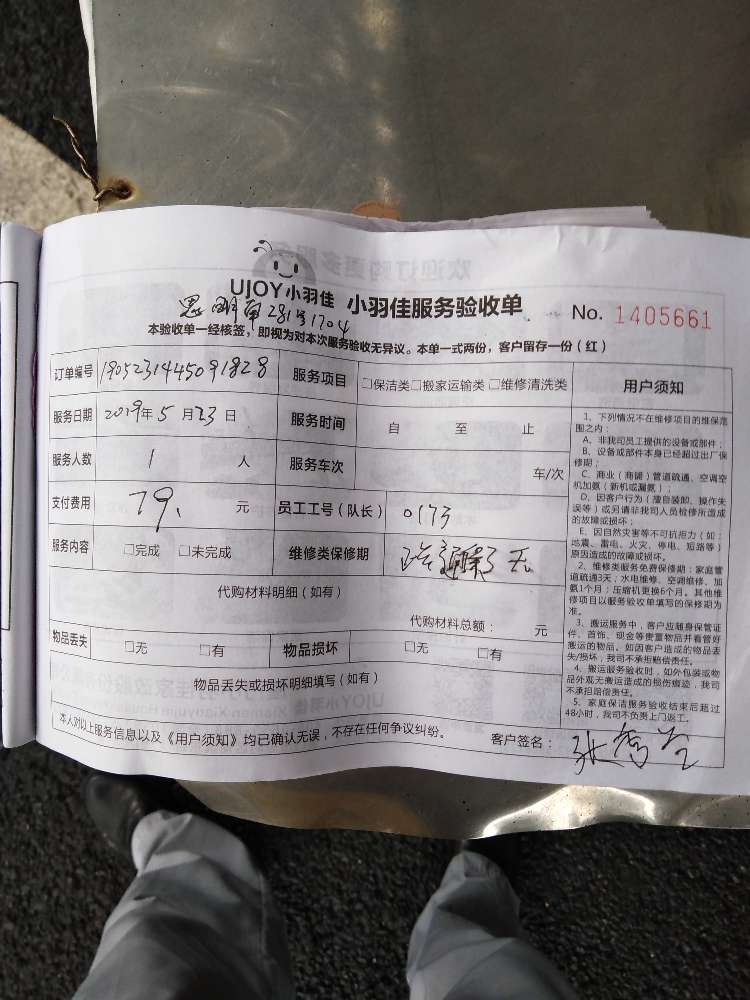 UJOY小羽佳 小羽佳服务验收单 No. 1405661
281号1704
本验收单一经核签，即视为对本次服务验收无异议。本单一式两份，客户留存一份（红）
订单编号 1905231445091828 服务项目 □保洁类□搬家运输类 □维修清洗类 用户须知
服务日期 2019年 5 月 23 日 服务时间 自 至 止
服务人数 1 人 服务车次 车/次
支付费用 79. 元 员工工号（队长） 0173
服务内容 □完成 □未完成 维修类保修期 无
代购材料明细（如有）
代购材料总额： 元
物品丢失 □无 □有 物品损坏 □无 □有
物品丢失或损坏明细填写（如有）
本人对以上服务信息以及《用户须知》均已确认无误，不存在任何争议纠纷。 客户签名：
1、下列情况不在维修项目的维保范
围之内：
A、非我司员工提供的设备或部件；
B、设备或部件本身已经超过出厂保
修期；
C、商业（商铺）管道疏通、空调空
机加氨（新机或漏氨）；
D、因客户行为（擅自装卸、操作失
误等）或另请非我司人员检修所造成
的故障或损坏；
E、因自然灾害等不可抗拒力（如：
地震、雷电、火灾、停电、短路等）
原因造成的故障或损坏。
2、维修类服务免费保修期：家庭管
道疏通3天；水电维修、空调维修、加
氨1个月；压缩机更换6个月。其他维
修项目以服务验收单填写的保修期为
准。
3、搬运服务中，客户应随身保管证
件、首饰、现金等贵重物品并看管好
搬运的物品。如因客户造成的物品丢
失/损坏，我司不承担赔偿责任。
4、搬运服务验收时，如外包装或物
品外观无搬运造成的损伤痕迹，我司
不承担赔偿责任。
5、家庭保洁服务验收结束后超过
48小时，我司不负责上门返工。